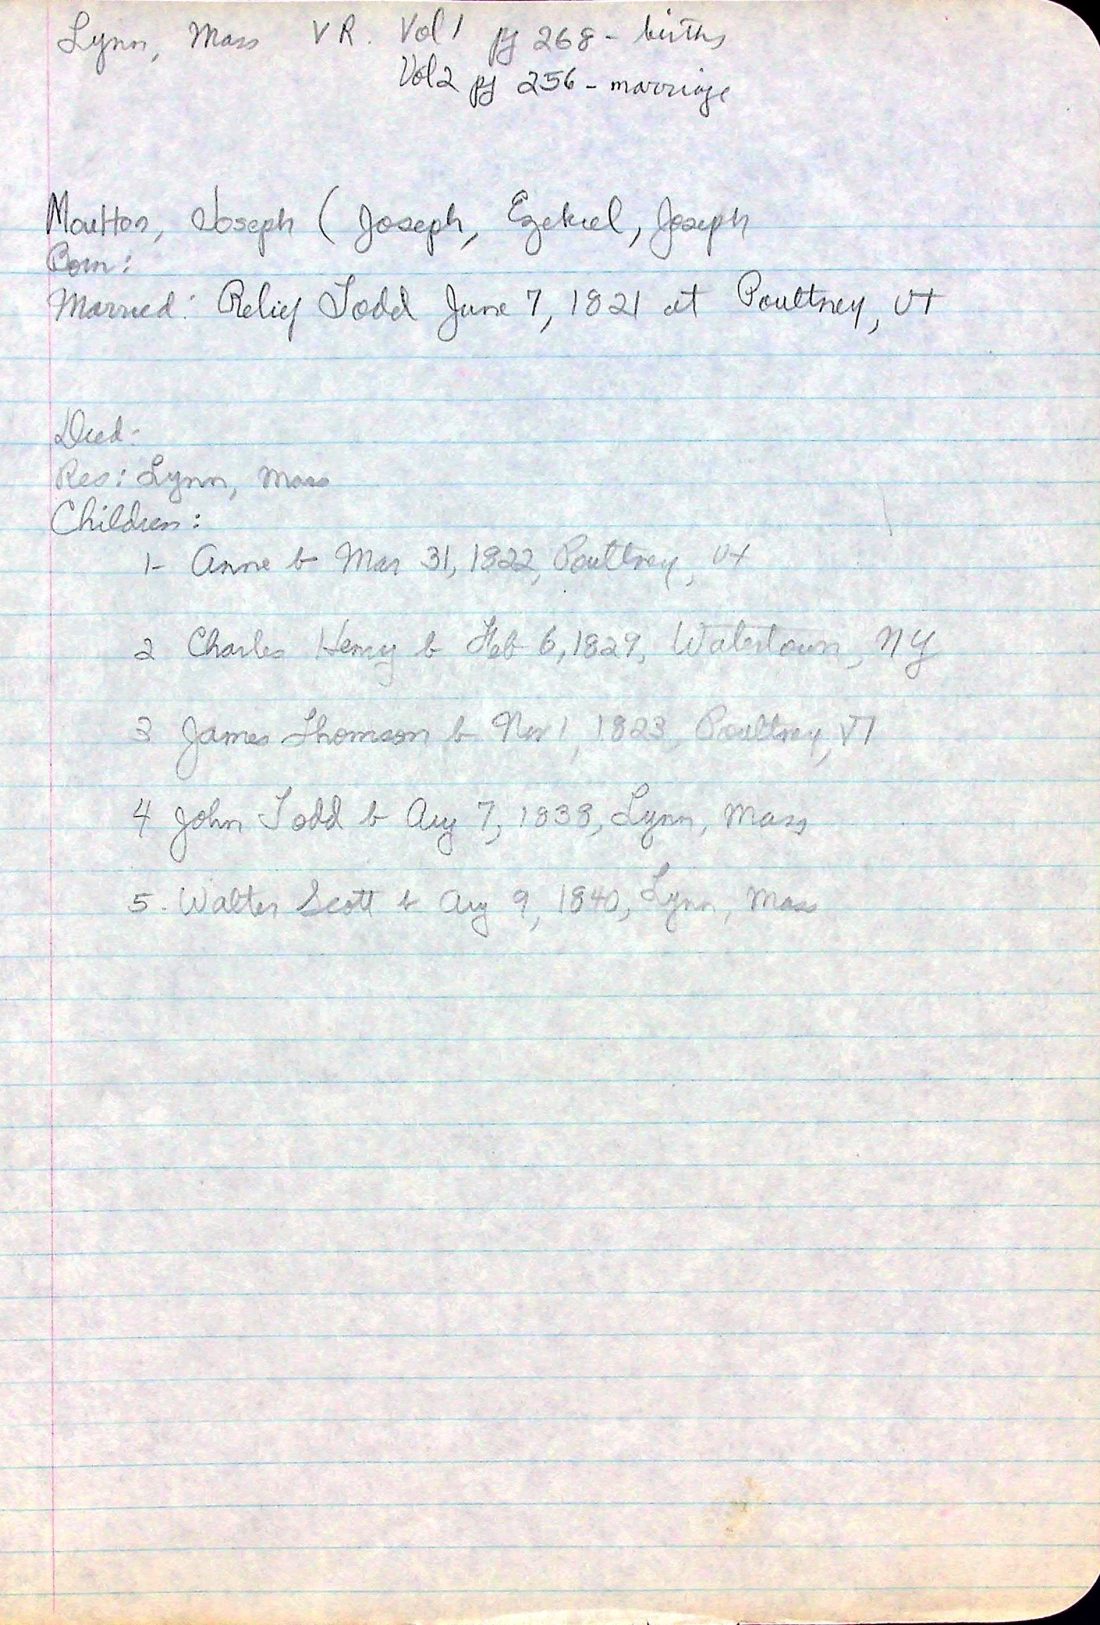 Lynn, Mass VR. Vol 1 pg 268 - births
Vol 2 pg 256 - marriage
Moulton, Joseph ( Joseph, Ezekiel, Joseph
Born:
Married: Relief Todd June 7, 1821 at Poultney, VT
Died-
Res: Lynn, Mass
Children:
1- Anne b Mar 31, 1822, Poultney, Vt
2 Charles Henry b Feb 6, 1829, Watertown, NY
3 James Thomson b Nov 1, 1823, Poultney, VT
4 John Todd b Aug 7, 1838, Lynn, Mass
5. Walter Scott b Aug 9, 1840, Lynn, Mass